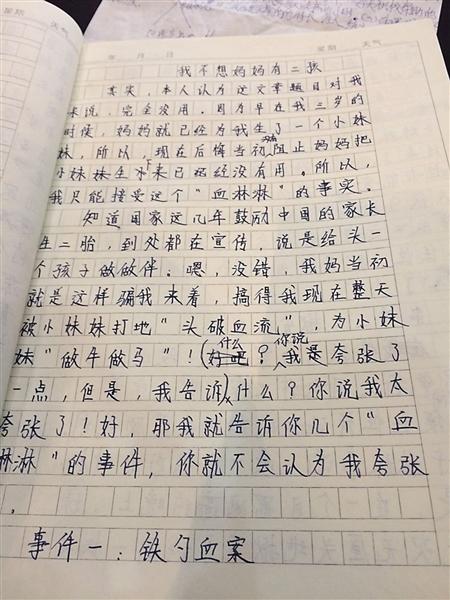 星期 天气
年 月 日 星期 天气
我不想妈妈有二孩
其实，本人认为这文章题目对我
来说，完全没用。因为早在我三岁的
时候，妈妈就已经为我生了一个小妹
妹，所以，现在后悔当初阻止妈妈把
小妹妹生下来已经没有用。所以，
我只能接受这个"血淋淋"的事实。
知道国家这几年鼓励中国的家长
生二胎，到处都在宣传，说是给头一
个孩子做做伴。嗯，没错，我妈当初
就是这样骗我来着，搞得我现在整天
被小妹妹打地"头破血流"，为小妹
妹"做牛做马"！(什么？你说我是夸张了
一点，但是，我告诉)什么？你说我太
夸张了！好，那我就告诉你几个"血
淋淋"的事件，你就不会认为我夸张
。
事件一：铁勺血案